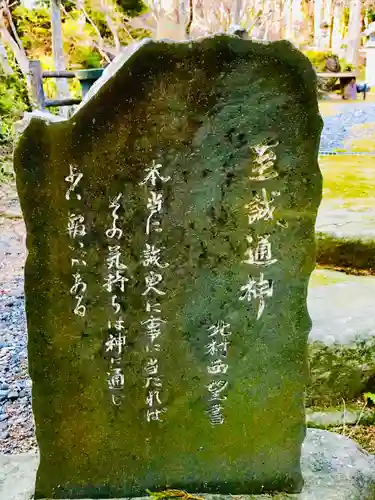 至誠通神
北村西望書
本当に誠実に事に当たれば
その気持ちは神に通じ
よい報いがある